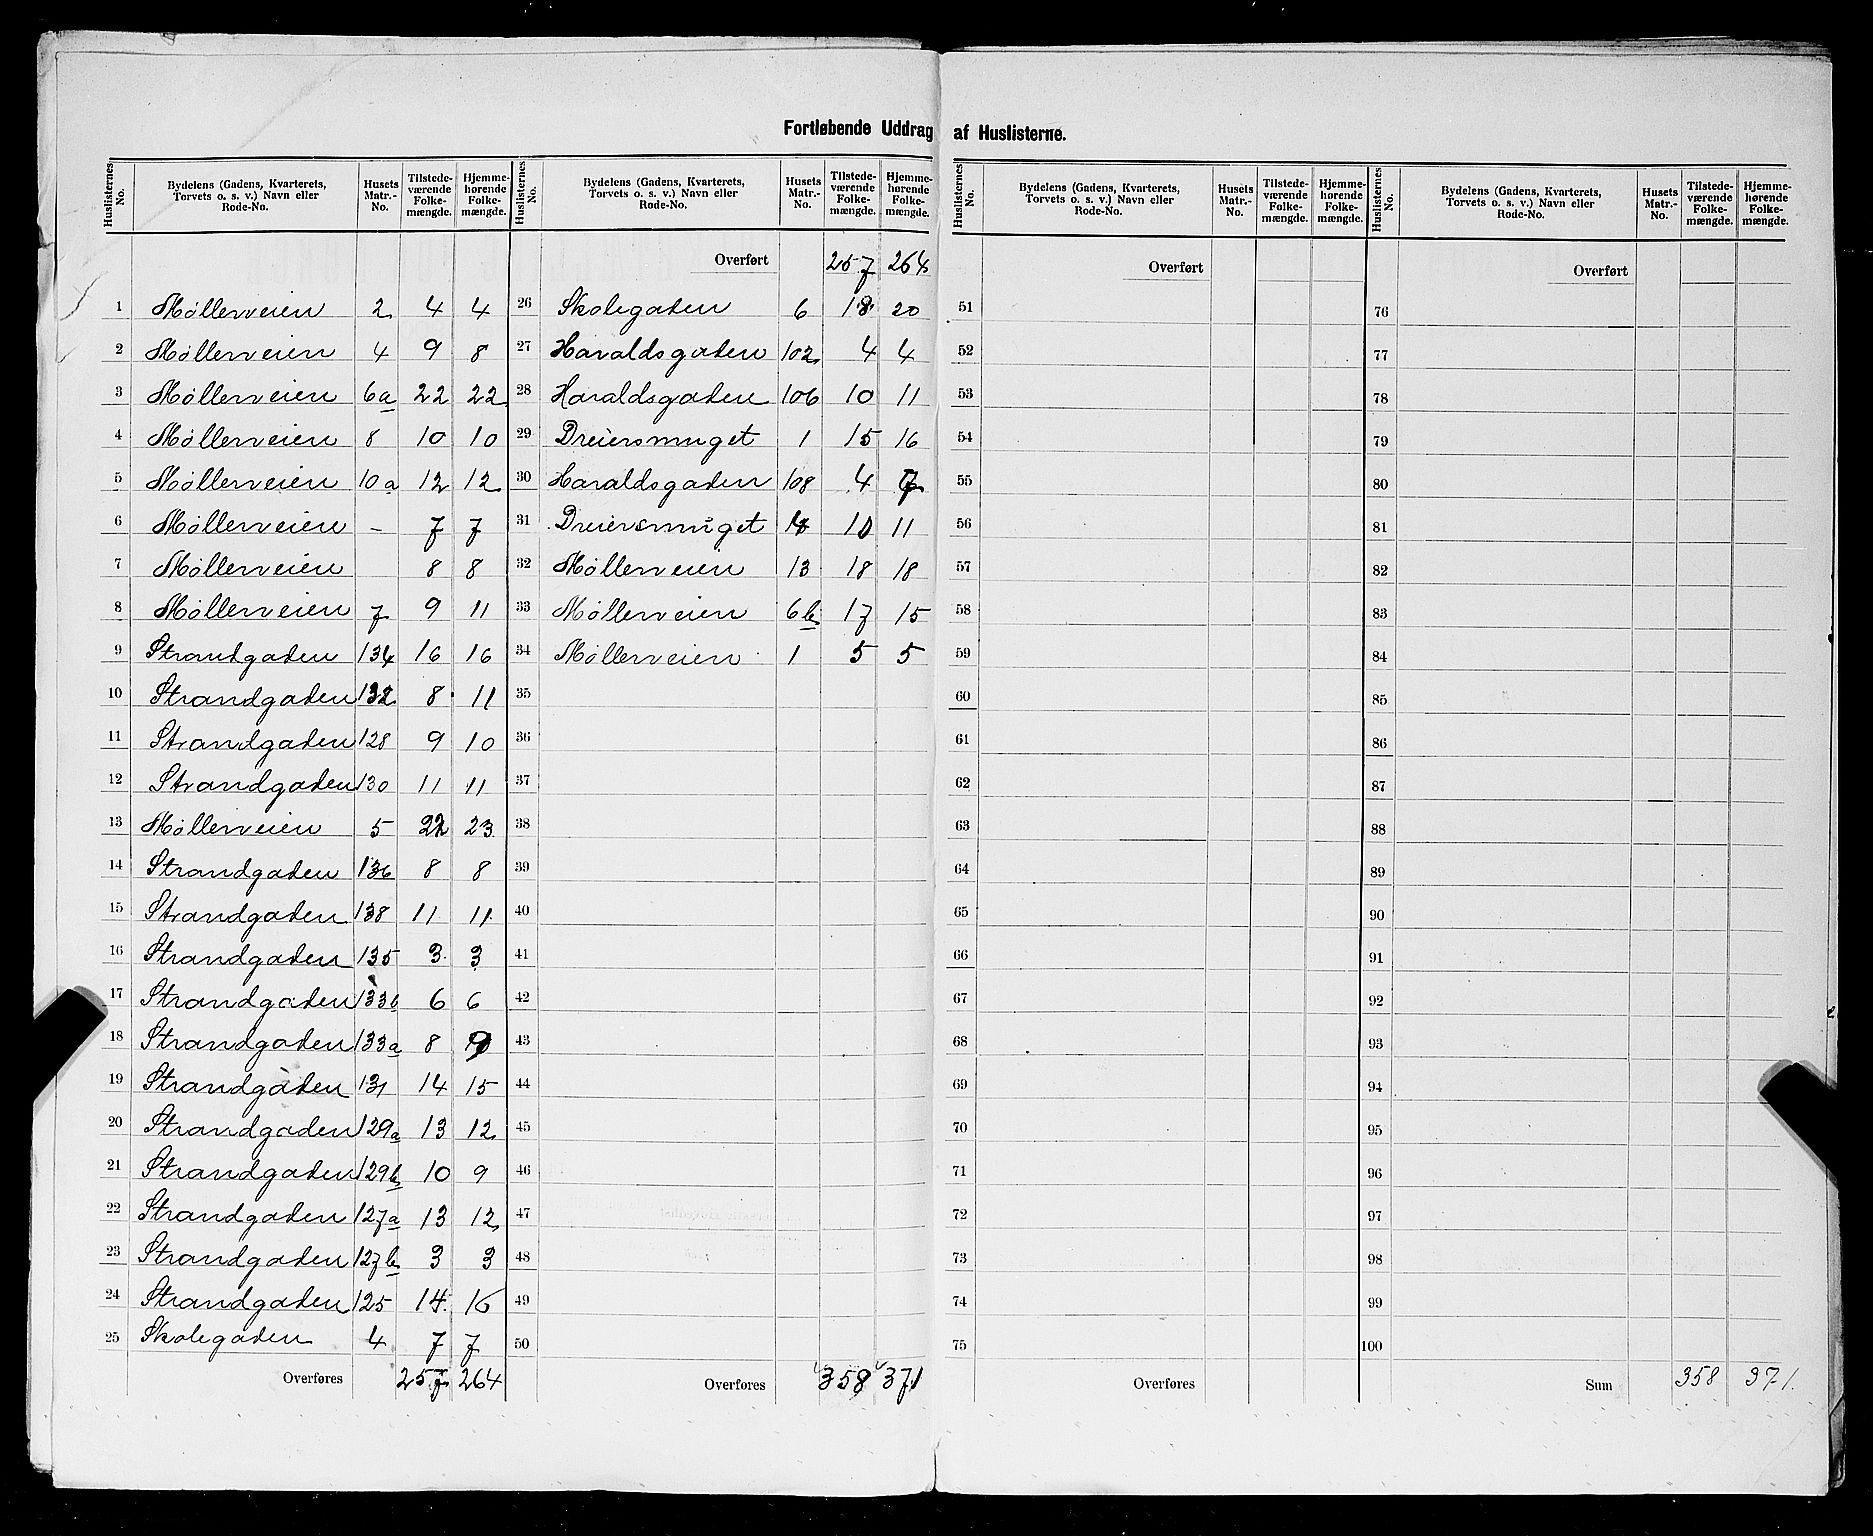 Fortløbende Uddrag af Huslisterne.
Huslisternes No. | Bydelens (Gadens, Kvarterets, Torvets o. s. v.) Navn eller Rode-No. | Husets Matr.-No. | Tilstede-værende Folke-mængde. | Hjemme-hørende Folke-mængde.
1 Møllerveien 2 4 4
2 Møllerveien 4 9 8
3 Møllerveien 6a 22 22
4 Møllerveien 8 10 10
5 Møllerveien 10a 12 12
6 Møllerveien - 7 7
7 Møllerveien 8 8
8 Møllerveien 7 9 11
9 Strandgaden 134 16 16
10 Strandgaden 132 8 11
11 Strandgaden 128 9 10
12 Strandgaden 130 11 11
13 Møllerveien 5 22 23
14 Strandgaden 136 8 8
15 Strandgaden 138 11 11
16 Strandgaden 135 3 3
17 Strandgaden 133b 6 6
18 Strandgaden 133a 8 9
19 Strandgaden 131 14 15
20 Strandgaden 129a 13 12
21 Strandgaden 129b 10 9
22 Strandgaden 127a 13 12
23 Strandgaden 127b 3 3
24 Strandgaden 125 14 16
25 Skolegaden 4 7 7
Overføres 257 264
Huslisternes No. | Bydelens (Gadens, Kvarterets, Torvets o. s. v.) Navn eller Rode-No. | Husets Matr.-No. | Tilstede-værende Folke-mængde. | Hjemme-hørende Folke-mængde.
Overført 257 264
26 Skolegaden 6 18 20
27 Haraldsgaden 102 4 4
28 Haraldsgaden 106 10 11
29 Dreiersmuget 1 15 16
30 Haraldsgaden 108 4 7
31 Dreiersmuget 10 11
32 Møllerveien 13 18 18
33 Møllerveien 6b 17 15
34 Møllerveien 1 5 5
35
36
37
38
39
40
41
42
43
44
45
46
47
48
49
50
Overføres 358 371
Huslisternes No. | Bydelens (Gadens, Kvarterets, Torvets o. s. v.) Navn eller Rode-No. | Husets Matr.-No. | Tilstede-værende Folke-mængde. | Hjemme-hørende Folke-mængde.
Overført
51
52
53
54
55
56
57
58
59
60
61
62
63
64
65
66
67
68
69
70
71
72
73
74
75
Overføres
Huslisternes No. | Bydelens (Gadens, Kvarterets, Torvets o. s. v.) Navn eller Rode-No. | Husets Matr.-No. | Tilstede-værende Folke-mængde. | Hjemme-hørende Folke-mængde.
Overført
76
77
78
79
80
81
82
83
84
85
86
87
88
89
90
91
92
93
94
95
96
97
98
99
100
Sum 358 371.